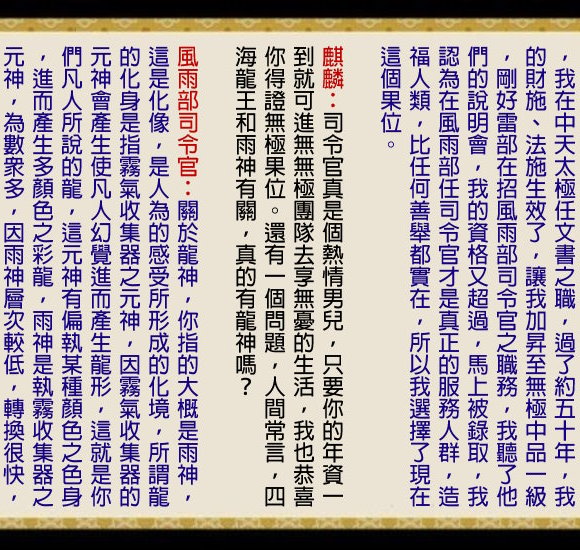 ，我在中天太極任文書之職，過了約五十年，我
的財施、法施生效了，讓我加昇至無極中品一級
，剛好雷部在招風雨部司令官之職務，我聽了他
們的說明會，我的資格又超過，馬上被錄取，我
認為在風雨部任司令官才是真正的服務人群，造
福人類，比任何善舉都實在，所以我選擇了現在
這個果位。
麒麟：司令官真是個熱情男兒，只要你的年資一
到就可進無極團隊去享無憂的生活，我也恭喜
你得證無極果位。還有一個問題，人間常言，四
海龍王和雨神有關，真的有龍神嗎？
風雨部司令官：關於龍神，你指的大概是雨神，
這是化像，是人為的感受所形成的化境，所謂龍
的化身是指霧氣收集器之元神，因霧氣收集器的
元神會產生使凡人幻覺進而產生龍形，這就是你
們凡人所說的龍，這元神有偏執某種顏色之色身
，進而產生多顏色之彩龍，雨神是執霧收集器之
元神，為數眾多，因雨神層次較低，轉換很快，